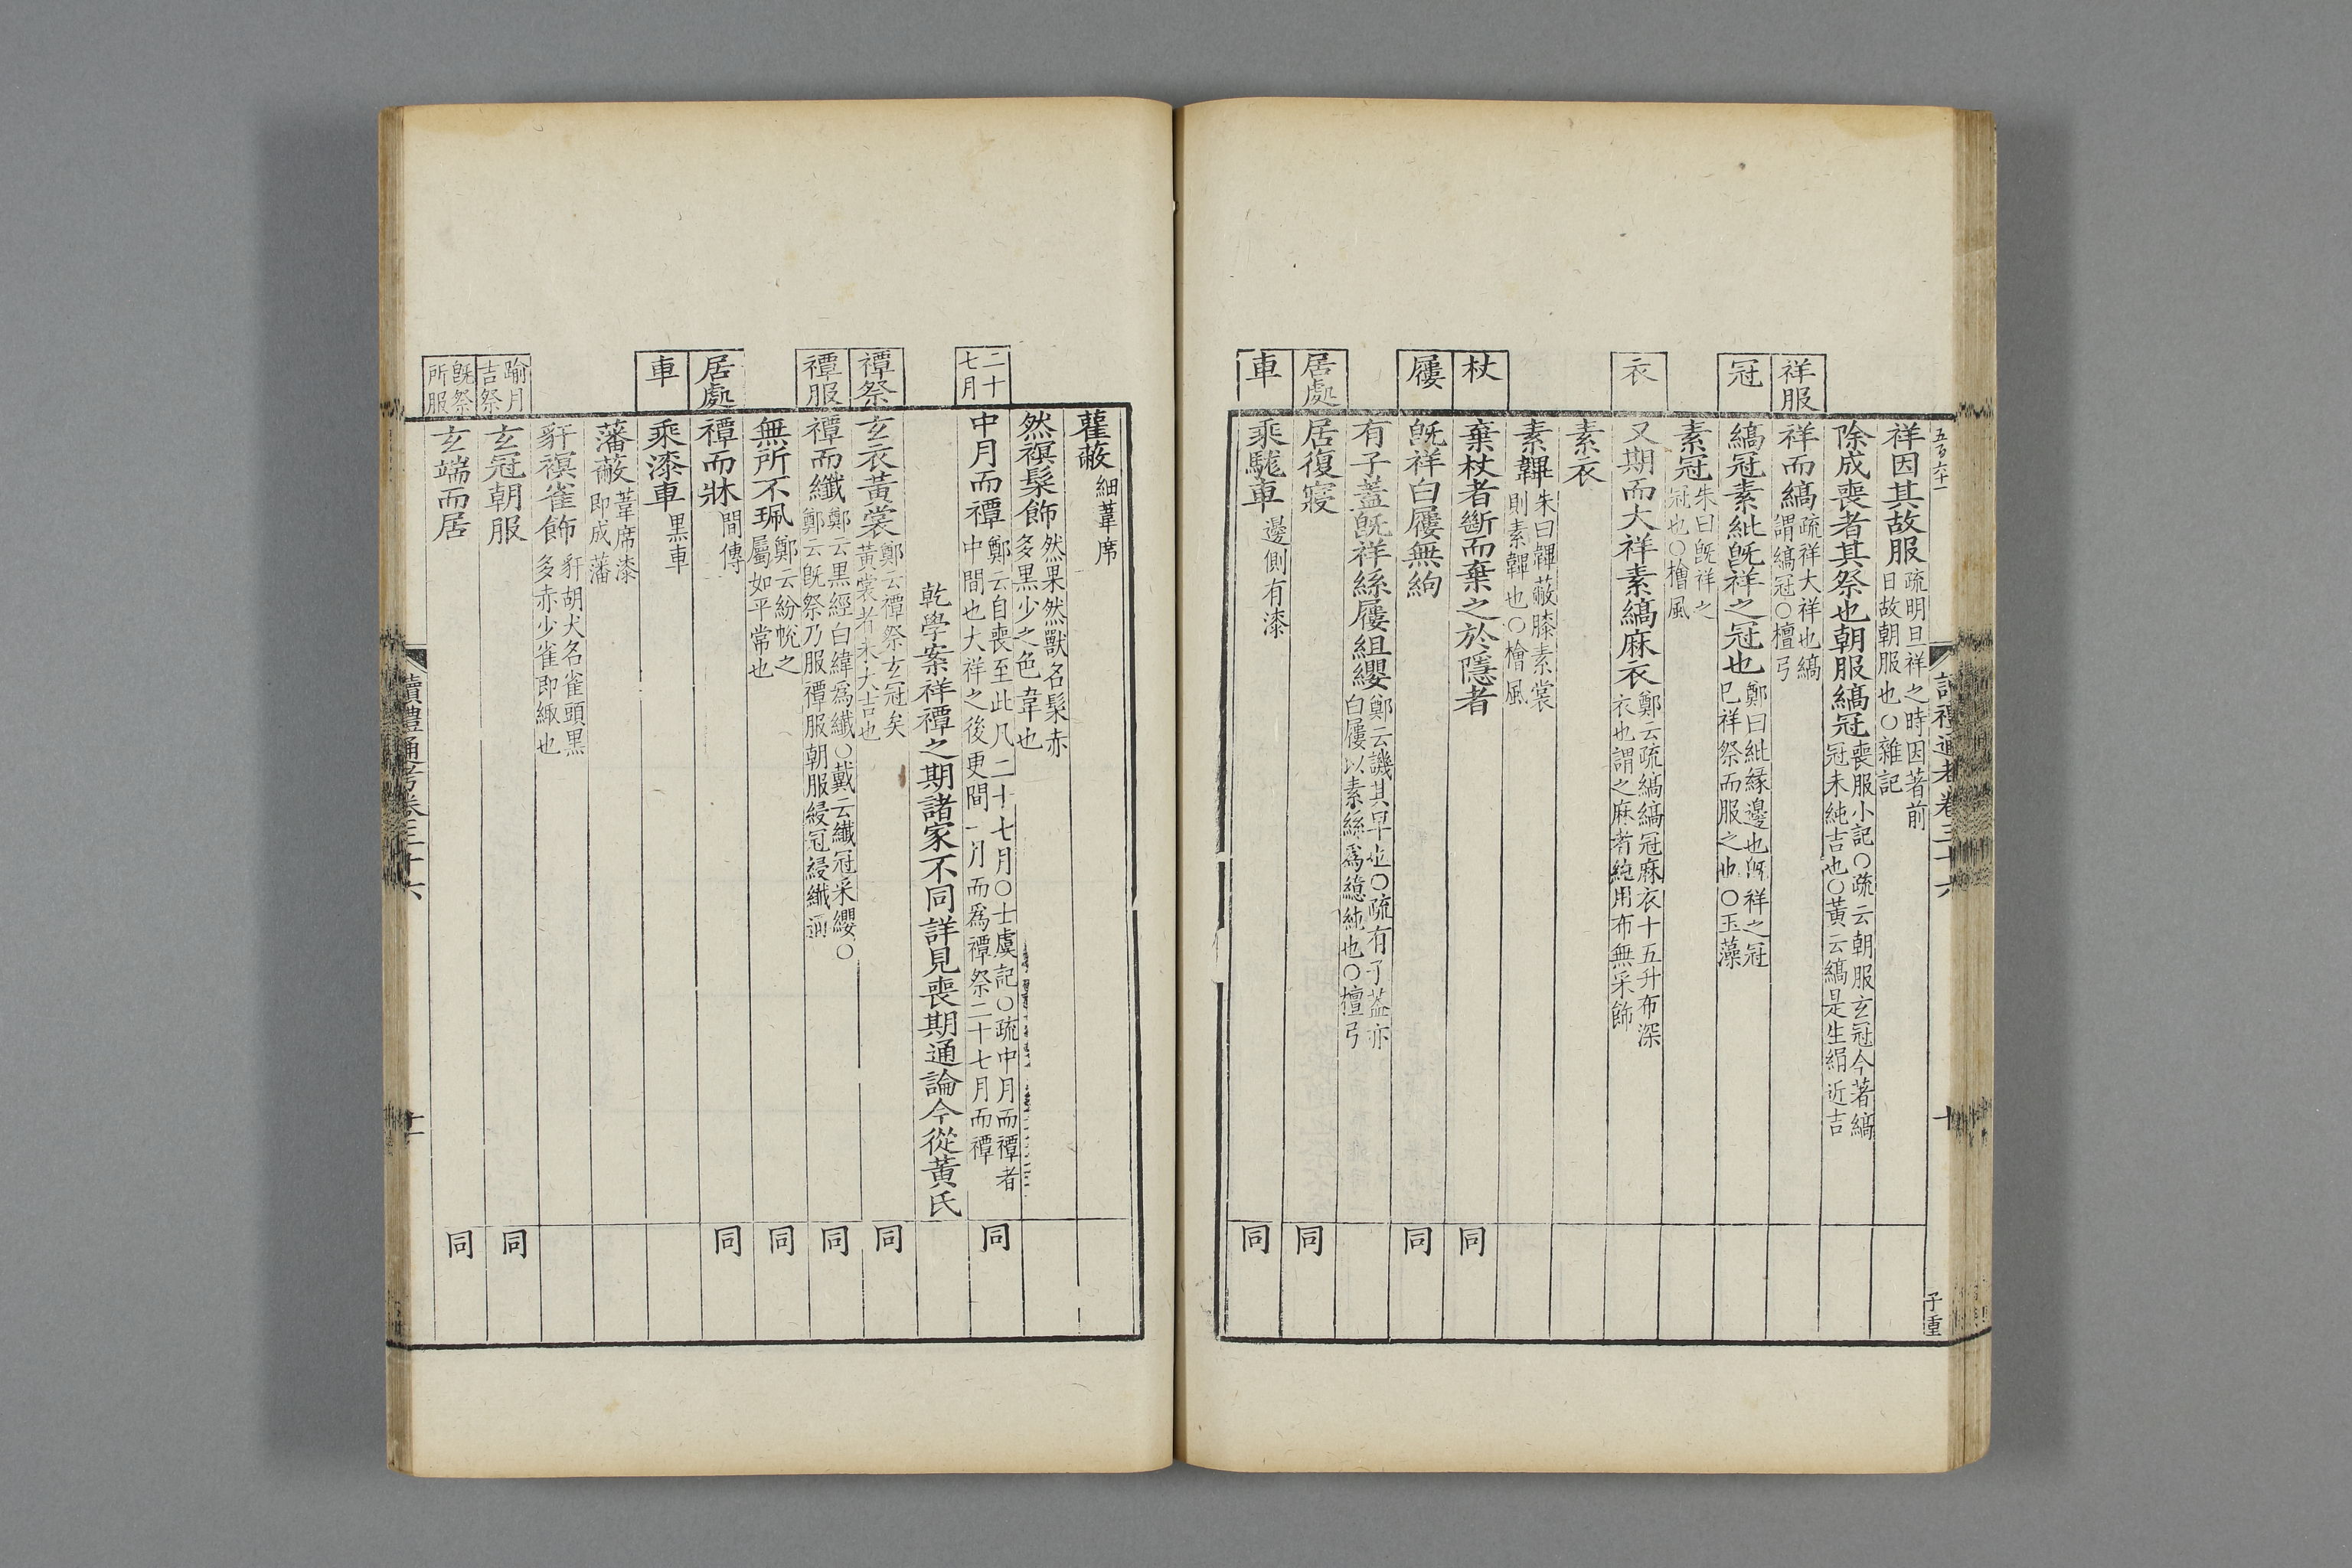 五百六十一
讀禮通考卷三十六
十
子重
祥因其故服 疏明旦祥之時因著前
日故朝服也○雜記
除成喪者其祭也朝服縞冠 喪服小記○疏云朝服玄冠今著縞
冠未純吉也○黃云縞是生絹近吉
祥服
祥而縞 疏祥大祥也縞
謂縞冠○檀弓
冠
縞冠素紕旣祥之冠也 鄭曰紕緣邊也旣祥之冠
已祥祭而服之也○玉藻
素冠 朱曰旣祥之
冠也○檜風
衣
又期而大祥素縞麻衣 鄭云疏縞縞冠麻衣十五升布深
衣也謂之麻者純用布無采飾
素衣
素韠 朱曰韠蔽膝素裳
則素韠也○檜風
杖
棄杖者斷而棄之於隱者
同
屨
旣祥白屨無絇
同
有子蓋旣祥絲屨組纓 鄭云譏其早也○疏有子蓋亦
白屨以素絲爲繶純也○檀弓
居處
居復寢
同
車
乘駹車 邊側有漆
同
雚蔽 細葦席
然𧜀髤飾 然果然獸名髤赤
多黑少之色韋也
二十七月
中月而禫 鄭云自喪至此凡二十七月○士虞記○疏中月而禫者
中間也大祥之後更間一月而爲禫祭二十七月而禫
同
乾學案祥禫之期諸家不同詳見喪期通論今從黃氏
禫祭
玄衣黃裳 鄭云禫祭玄冠矣
黃裳者未大吉也
同
禫服
禫而纖 鄭云黑經白緯爲纖○戴云纖冠采纓○
鄭云旣祭乃服禫服朝服綅冠綅纖通
同
無所不珮 鄭云紛帨之
屬如平常也
同
居處
禫而牀 間傳
同
車
乘漆車 黑車
藩蔽 葦席漆
即成藩
豻𧜀雀飾 豻胡犬名雀頭黑
多赤少雀即緅也
踰月吉祭
玄冠朝服
同
旣祭所服
玄端而居
同
讀禮通考卷三十六
十一